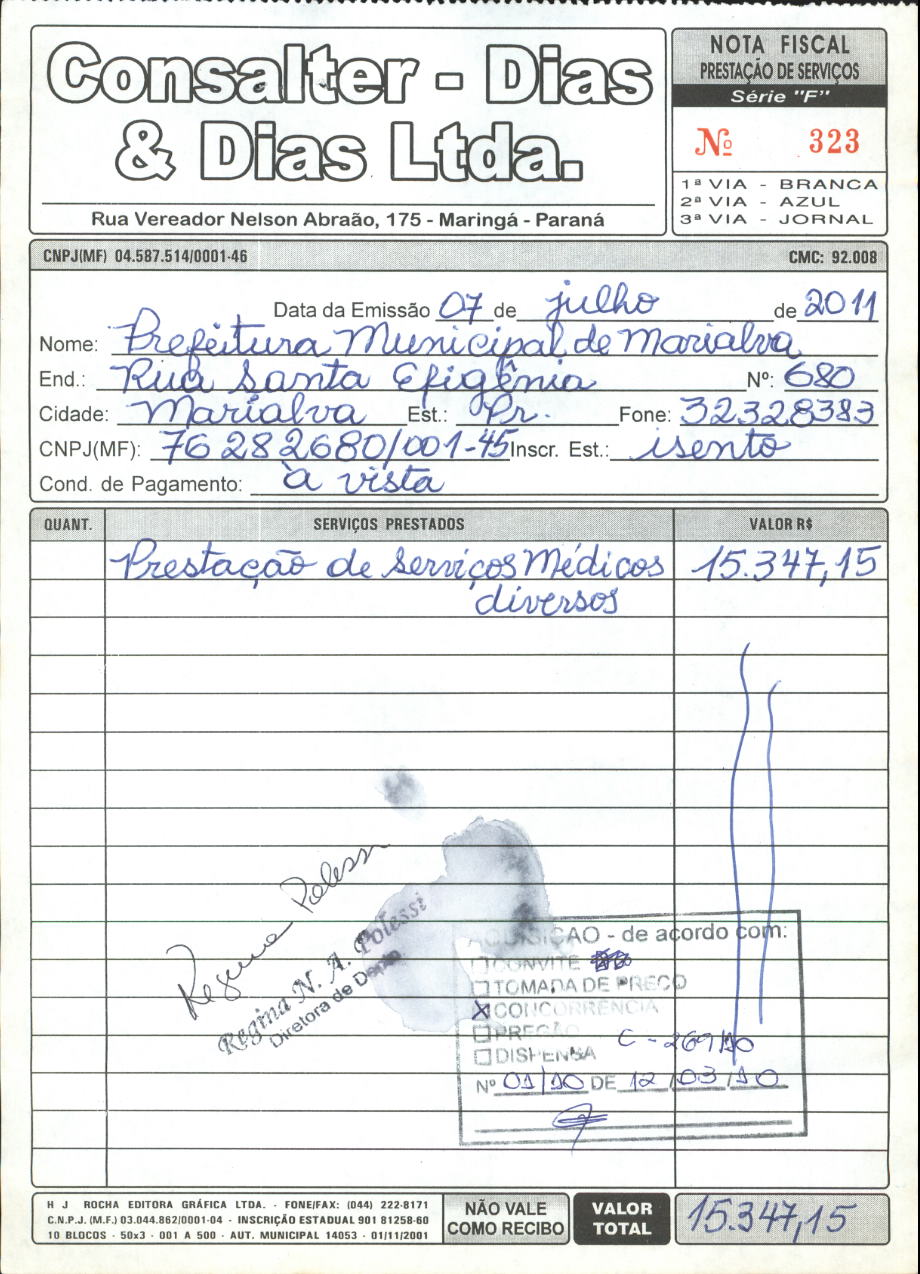 Consalter - Dias
& Dias Ltda.
Rua Vereador Nelson Abraão, 175 - Maringá - Paraná
NOTA FISCAL
PRESTAÇÃO DE SERVIÇOS
Série "F"
Nº 323
1ª VIA - BRANCA
2ª VIA - AZUL
3ª VIA - JORNAL
CNPJ(MF) 04.587.514/0001-46 CMC: 92.008
Data da Emissão 07 de julho de 2011
Nome: Prefeitura Municipal de Marialva
End.: Rua Santa Efigênia Nº: 680
Cidade: Marialva Est.: Pr. Fone: 32328383
CNPJ(MF): 76282680/001-45 Inscr. Est.: isento
Cond. de Pagamento: à vista
QUANT. SERVIÇOS PRESTADOS VALOR R$
Prestação de Serviços Médicos 15.347,15
diversos
Regina Polessi
Regina N. A. Polessi
Diretora de Depto
AQUISIÇÃO - de acordo com:
CONVITE
TOMADA DE PREÇO
X CONCORRÊNCIA
PREGÃO
DISPENSA C - 269/10
Nº 01/10 DE 12/03/10
H J ROCHA EDITORA GRÁFICA LTDA. - FONE/FAX: (044) 222-8171
C.N.P.J. (M.F.) 03.044.862/0001-04 - INSCRIÇÃO ESTADUAL 901 81258-60
10 BLOCOS - 50x3 - 001 A 500 - AUT. MUNICIPAL 14053 - 01/11/2001
NÃO VALE
COMO RECIBO
VALOR
TOTAL
15.347,15